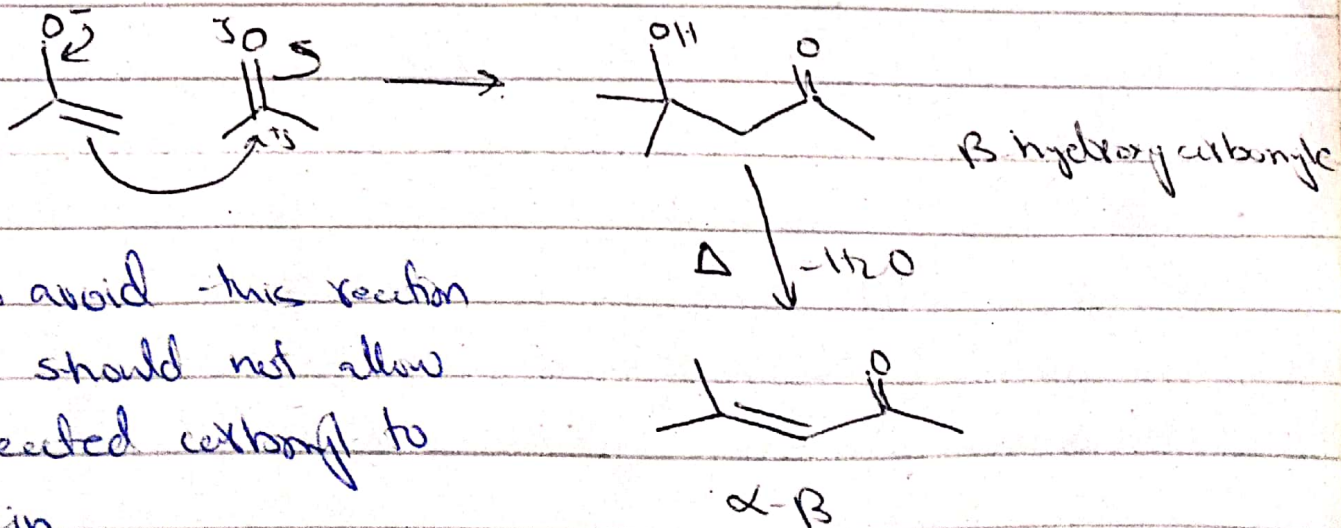 O⁻ δO OH O
+δ
β hydroxy carbonyle
Δ -H2O
avoid this reaction
should not allow
eacted carbonyl to
O
α-β
in